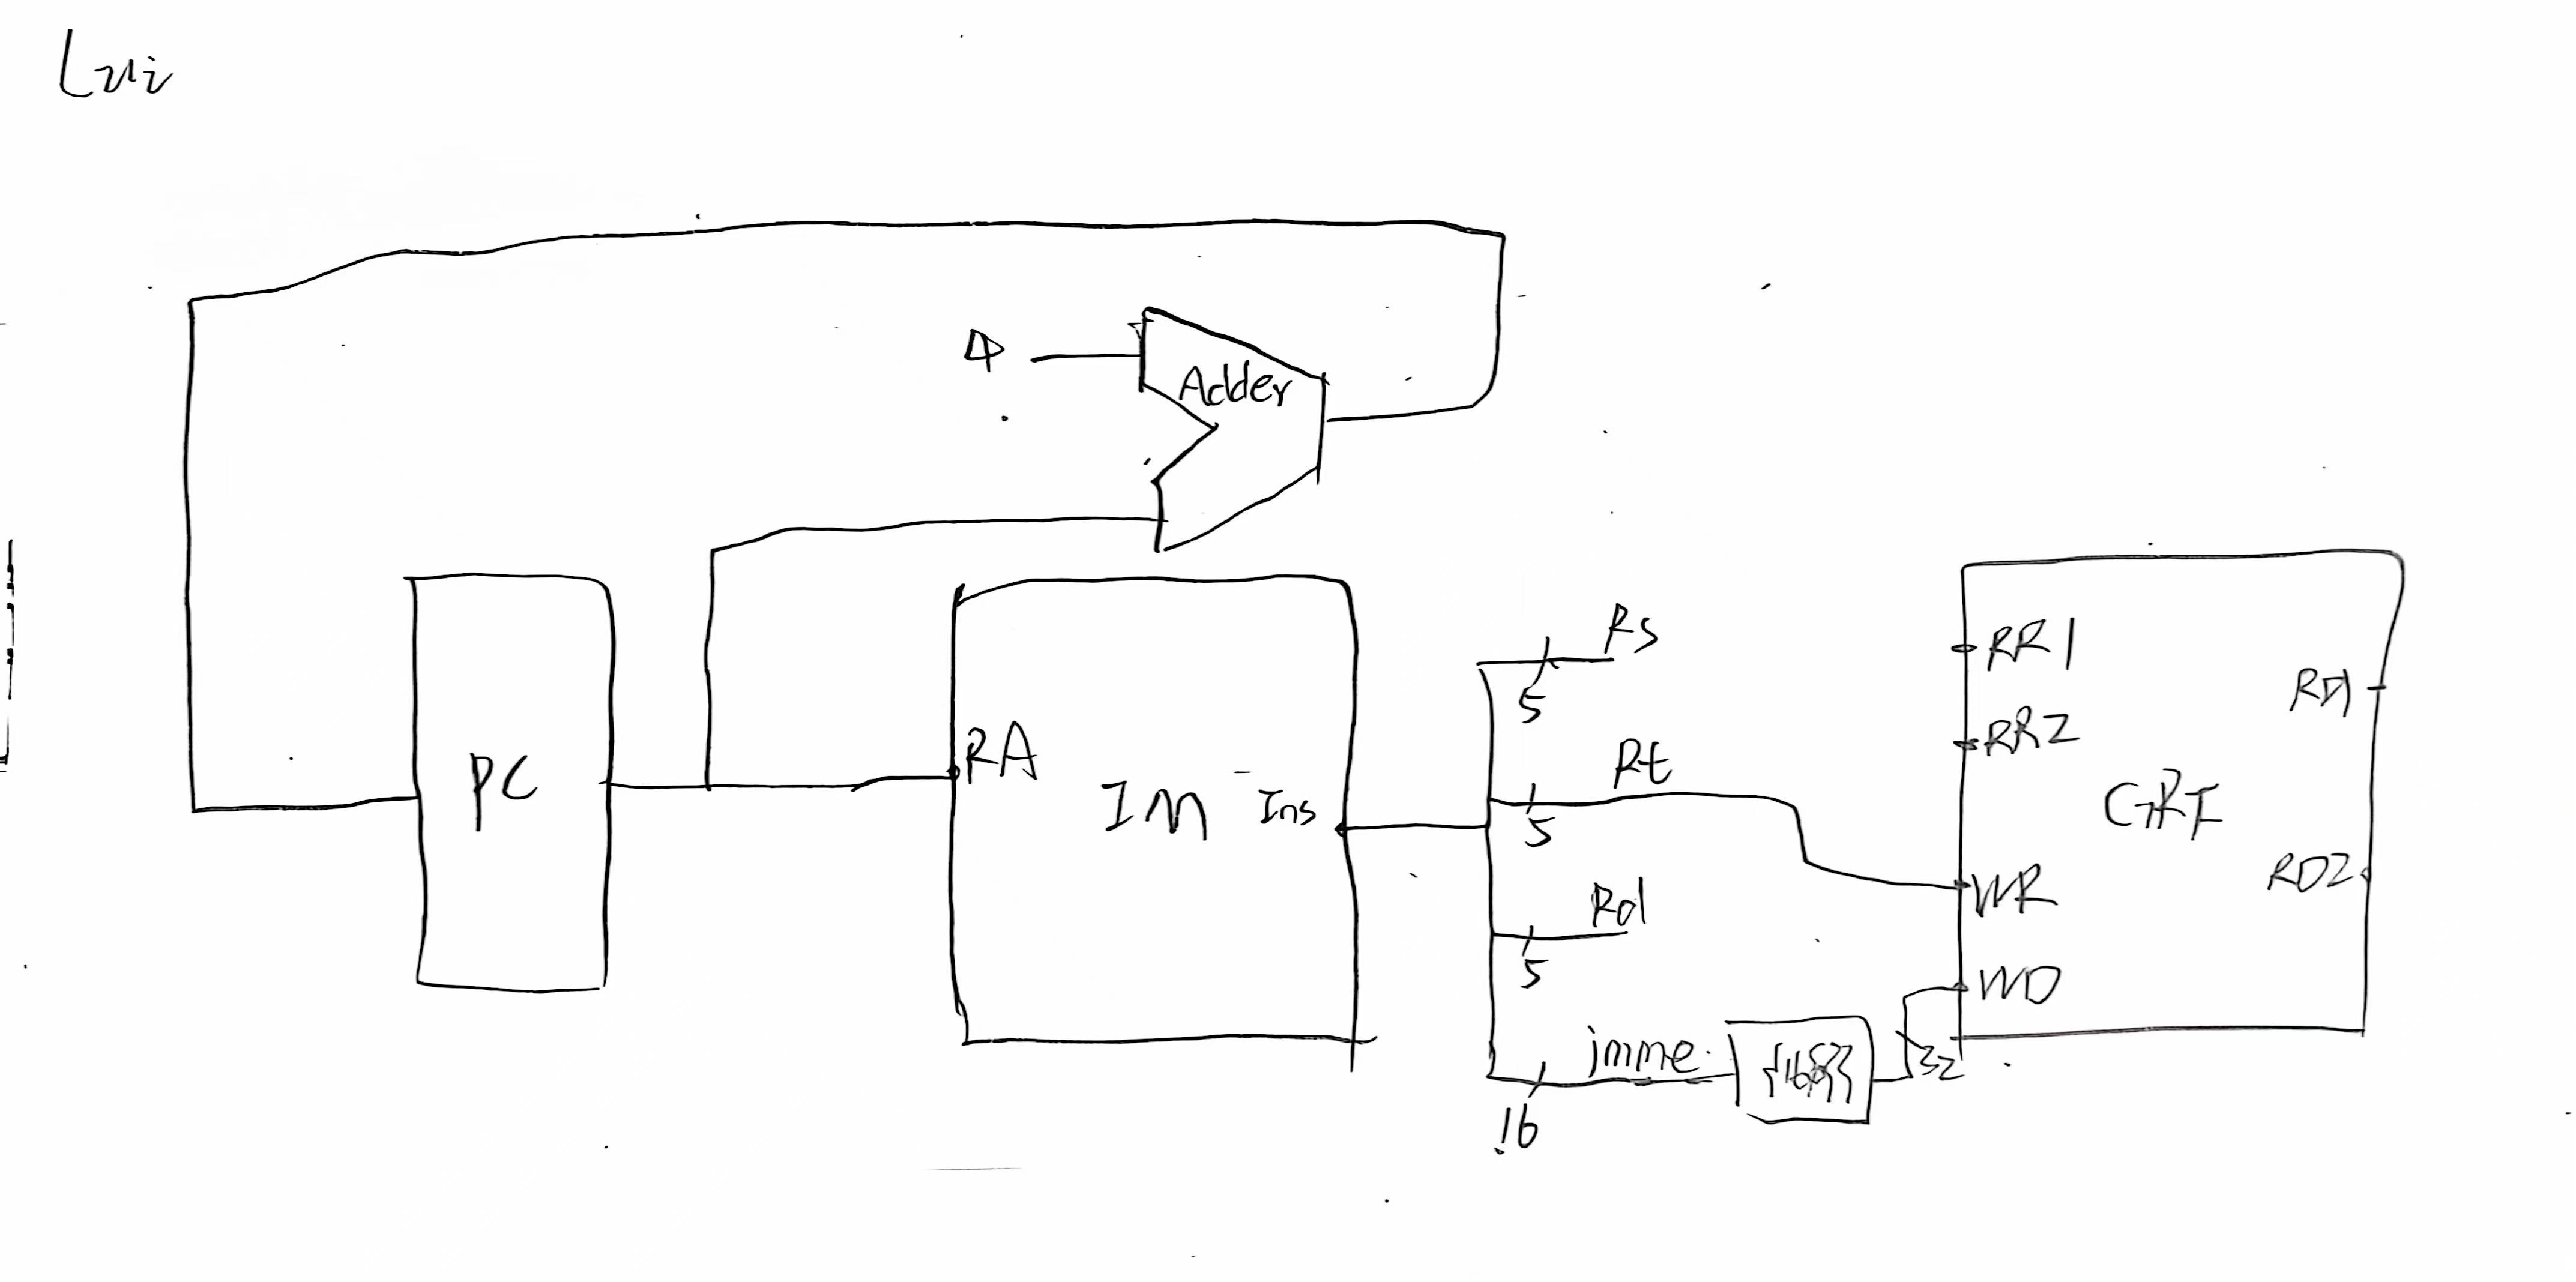 Lui
4
Adder
PC
RA
IM
Ins
Rs
5
Rt
5
Rd
5
imme.
16
32
RR1
RR2
WR
WD
GRF
RD1
RD2